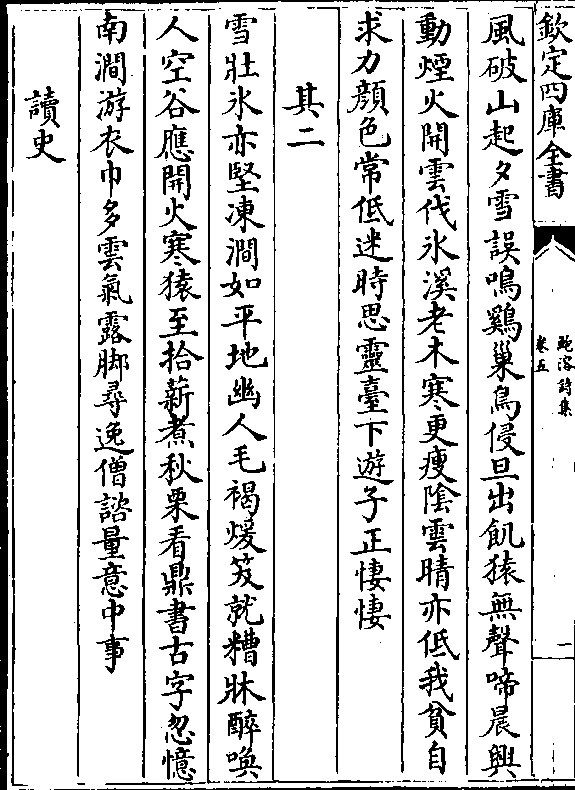 欽定四庫全書
鮑溶詩集
卷五
一
風破山起夕雪誤鳴鷄巢鳥侵旦出飢猿無聲啼晨興
動煙火開雲伐氷溪老木寒更瘦陰雲晴亦低我貧自
求力顔色常低迷時思靈臺下遊子正悽悽
其二
雪壯氷亦堅凍澗如平地幽人毛褐煖笑就糟牀醉喚
人空谷應開火寒猿至拾薪煮秋栗看鼎書古字忽憶
南澗游衣巾多雲氣露脚尋逸僧諮量意中事
讀史